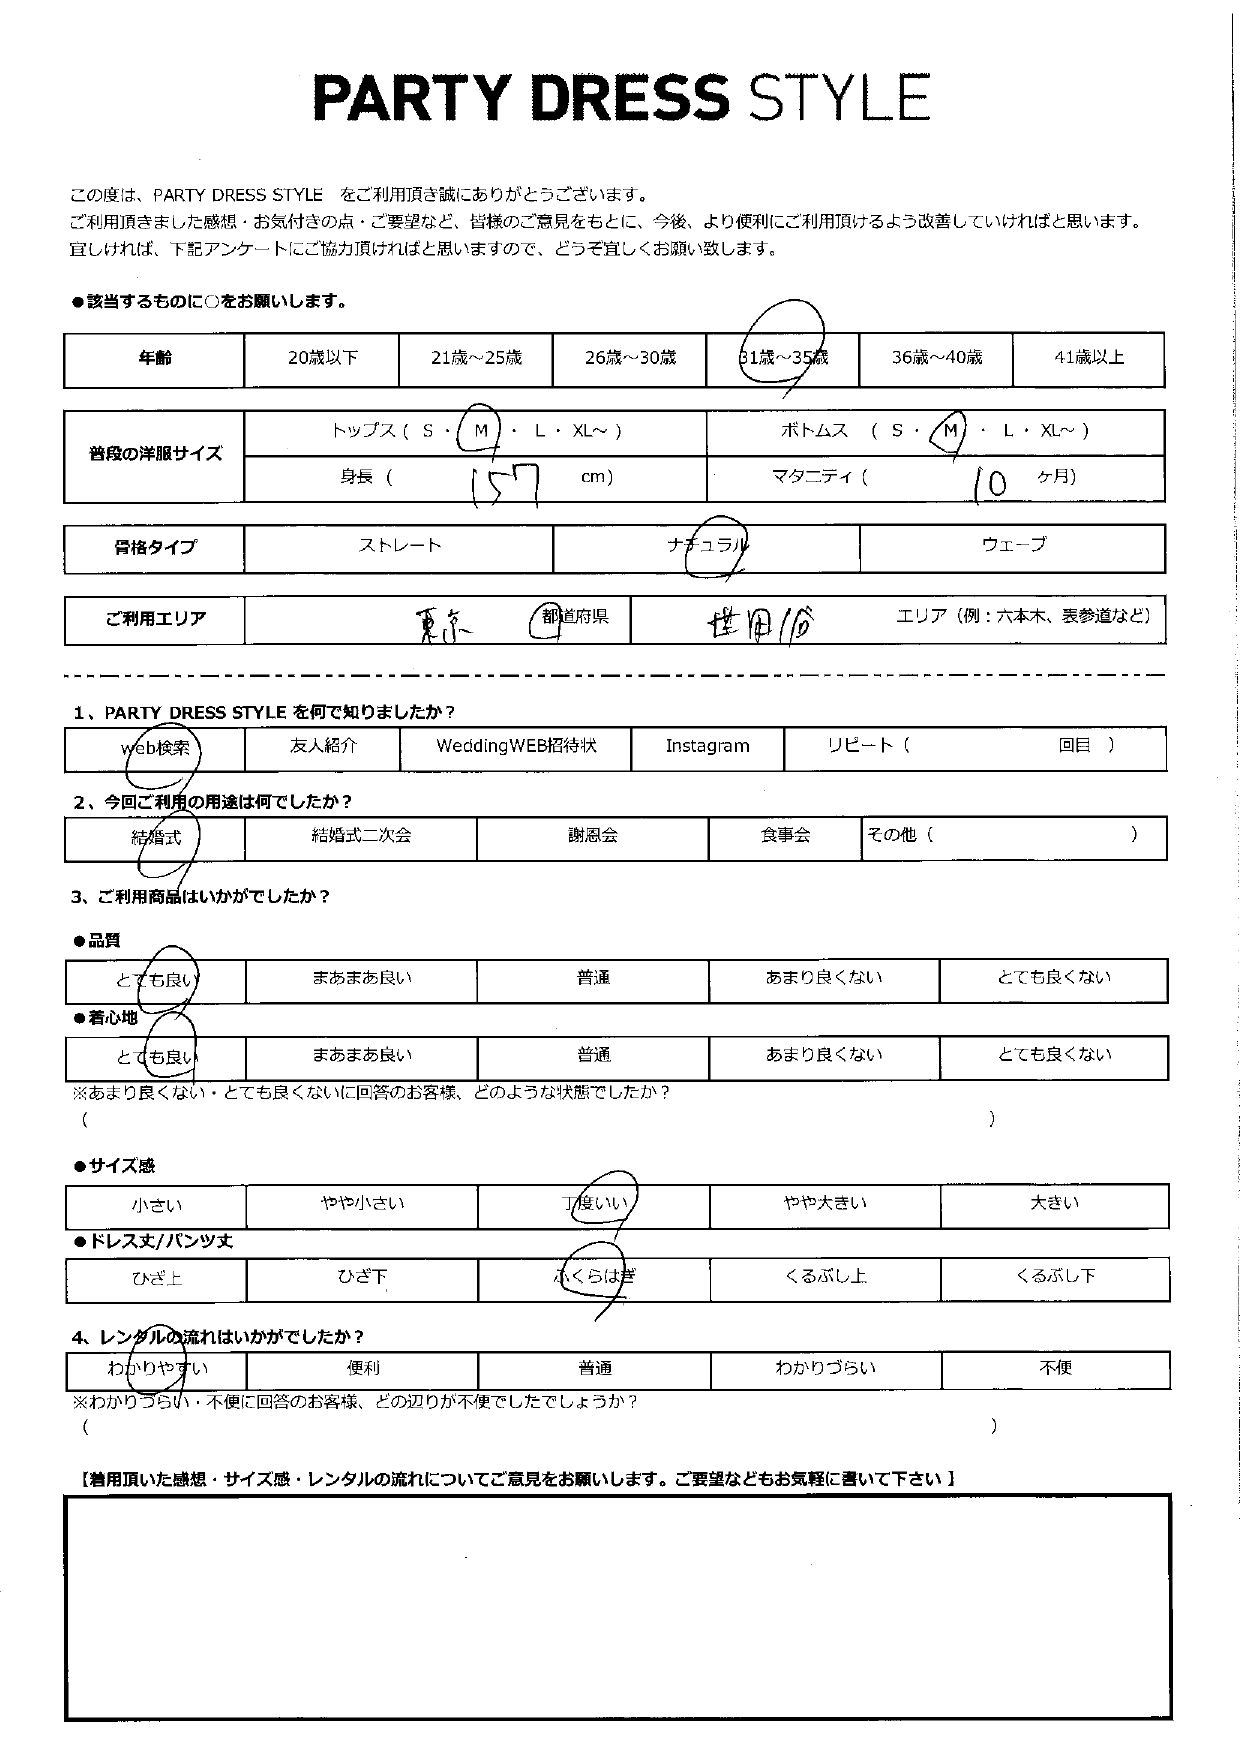 PARTY DRESS STYLE
この度は、PARTY DRESS STYLE　をご利用頂き誠にありがとうございます。
ご利用頂きました感想・お気付きの点・ご要望など、皆様のご意見をもとに、今後、より便利にご利用頂けるよう改善していければと思います。
宜しければ、下記アンケートにご協力頂ければと思いますので、どうぞ宜しくお願い致します。
●該当するものに○をお願いします。
年齢 20歳以下 21歳～25歳 26歳～30歳 31歳～35歳 36歳～40歳 41歳以上
普段の洋服サイズ
トップス ( S ・ M ・ L ・ XL～ ) ボトムス ( S ・ M ・ L ・ XL～ )
身長 ( 157 cm) マタニティ ( 10 ヶ月)
骨格タイプ ストレート ナチュラル ウェーブ
ご利用エリア 東京 都道府県 世田谷 エリア（例：六本木、表参道など）
1、PARTY DRESS STYLE を何で知りましたか？
web検索 友人紹介 WeddingWEB招待状 Instagram リピート ( 回目 )
2、今回ご利用の用途は何でしたか？
結婚式 結婚式二次会 謝恩会 食事会 その他 ( )
3、ご利用商品はいかがでしたか？
●品質
とても良い まあまあ良い 普通 あまり良くない とても良くない
●着心地
とても良い まあまあ良い 普通 あまり良くない とても良くない
※あまり良くない・とても良くないに回答のお客様、どのような状態でしたか？
( )
●サイズ感
小さい やや小さい 丁度いい やや大きい 大きい
●ドレス丈/パンツ丈
ひざ上 ひざ下 ふくらはぎ くるぶし上 くるぶし下
4、レンタルの流れはいかがでしたか？
わかりやすい 便利 普通 わかりづらい 不便
※わかりづらい・不便に回答のお客様、どの辺りが不便でしたでしょうか？
( )
【着用頂いた感想・サイズ感・レンタルの流れについてご意見をお願いします。ご要望などもお気軽に書いて下さい 】